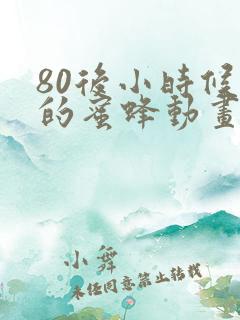 80後小時候
的蜜蜂動畫
小舞
未經同意禁止轉載